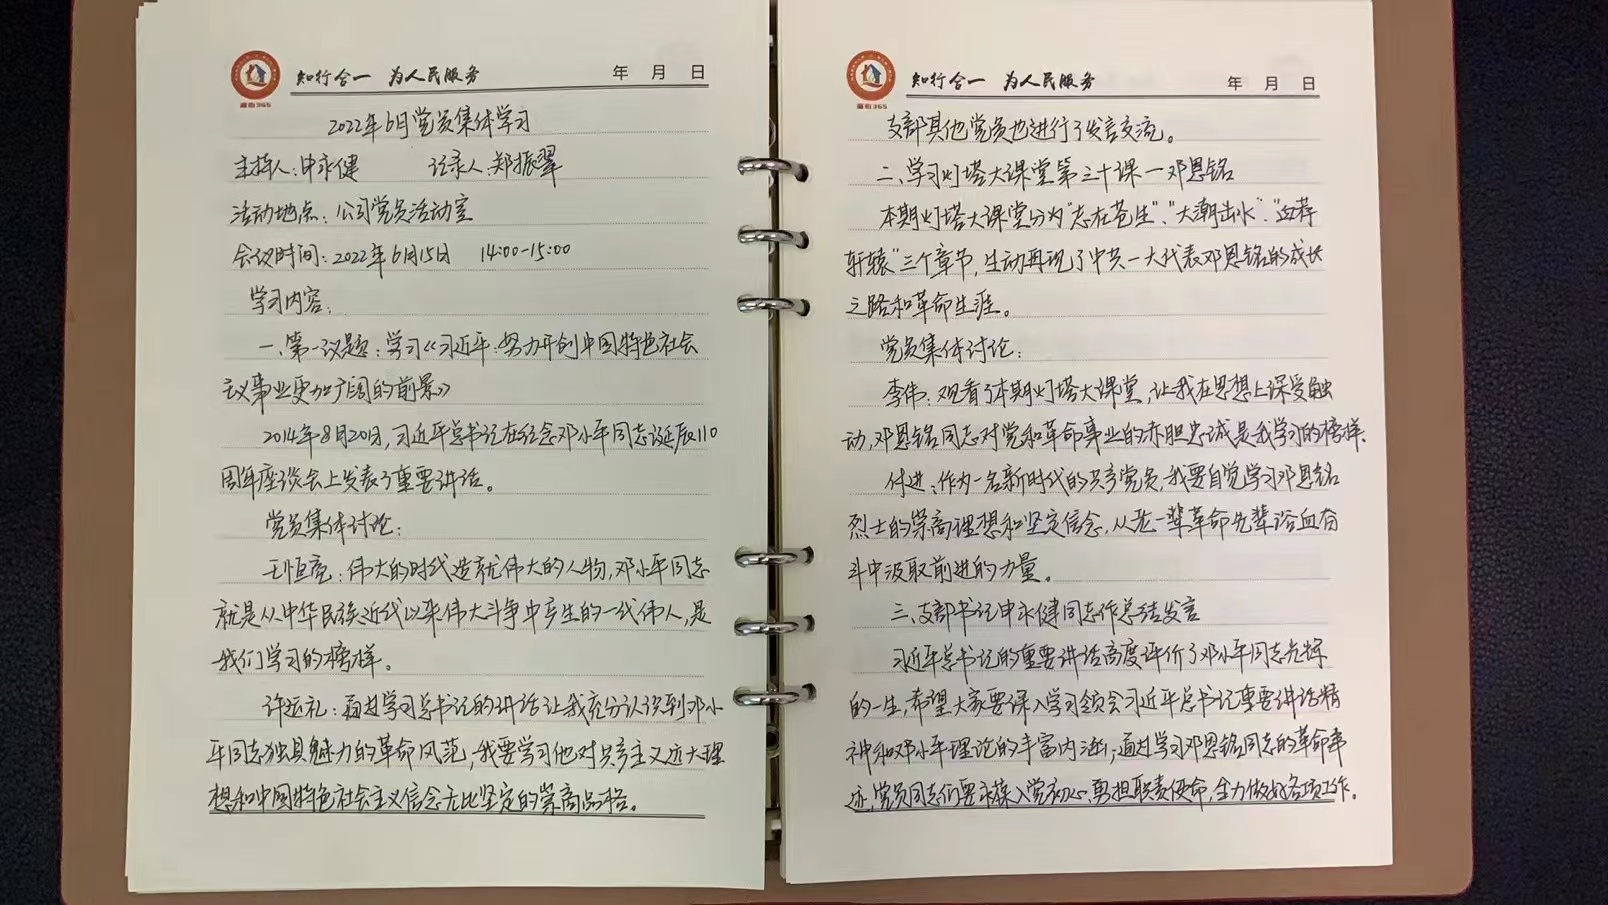 知行合一 为人民服务
年 月 日
2022年6月党员集体学习
主持人：申永健 记录人：郑振翠
活动地点：公司党员活动室
会议时间：2022年6月15日 14:00-15:00
学习内容：
一、第一议题：学习《习近平：努力开创中国特色社会
主义事业更加广阔的前景》
2014年8月20日，习近平总书记在纪念邓小平同志诞辰110
周年座谈会上发表了重要讲话。
党员集体讨论：
王恒亮：伟大的时代造就伟大的人物，邓小平同志
就是从中华民族近代以来伟大斗争中产生的一代伟人，是
我们学习的榜样。
许延礼：通过学习总书记的讲话让我充分认识到邓小
平同志独具魅力的革命风范，我要学习他对共产主义远大理
想和中国特色社会主义信念无比坚定的崇高品格。
知行合一 为人民服务
年 月 日
支部其他党员也进行了发言交流。
二、学习灯塔大课堂第三十课一邓恩铭
本期灯塔大课堂分为“志在苍生”、“大潮出水”、“血荐
轩辕”三个章节，生动再现了中共一大代表邓恩铭的成长
之路和革命生涯。
党员集体讨论：
李伟：观看了本期灯塔大课堂，让我在思想上深受触
动，邓恩铭同志对党和革命事业的赤胆忠诚是我学习的榜样、
付进：作为一名新时代的共产党员，我要自觉学习邓恩铭
烈士的崇高理想和坚定信念，从老一辈革命先辈浴血奋
斗中汲取前进的力量。
三、支部书记申永健同志作总结发言
习近平总书记的重要讲话高度评价了邓小平同志光辉
的一生，希望大家要深入学习领会习近平总书记重要讲话精
神和邓小平理论的丰富内涵；通过学习邓恩铭同志的革命事
迹，党员同志们要永葆入党初心，勇担职责使命，全力做好各项工作。